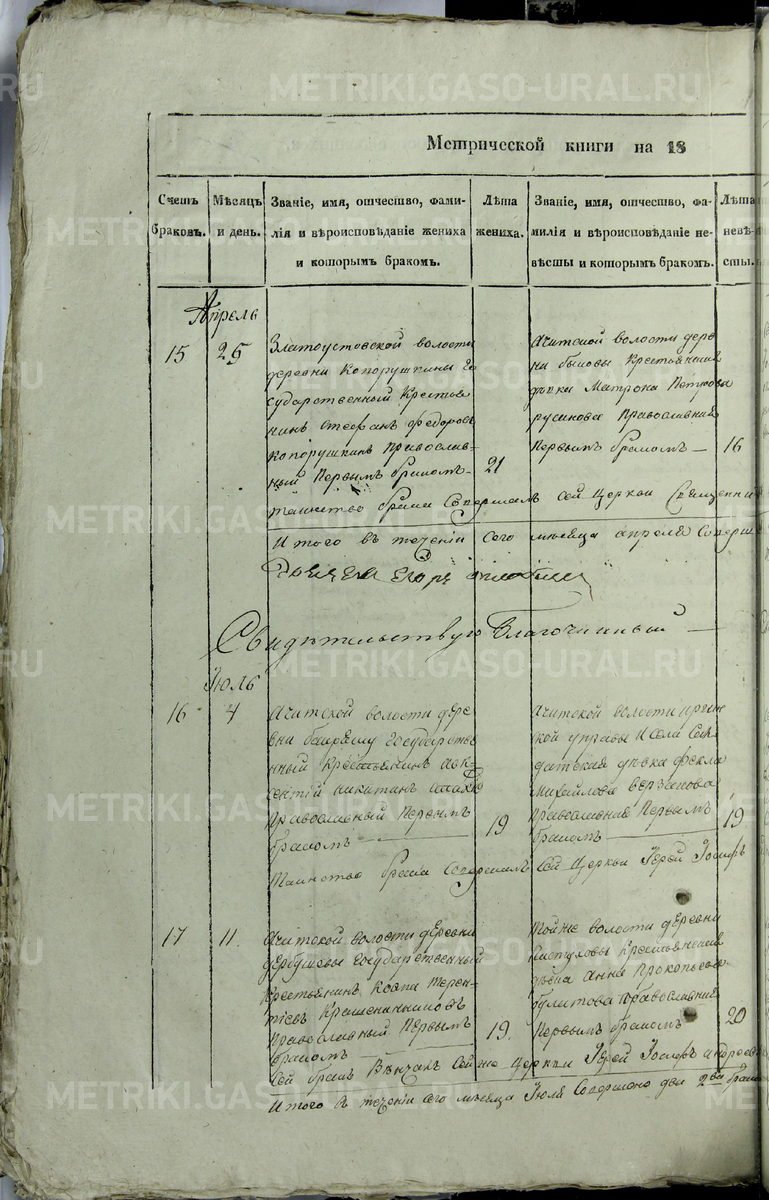 Метрической книги на 18
Счетъ браковъ.
Мѣсяцъ и день.
Званіе, имя, отчество, фами-
лія и вѣроисповѣданіе жениха
и которымъ бракомъ.
Лѣта жениха.
Званіе, имя, отчество, фа-
милія и вѣроисповѣданіе не-
вѣсты и которымъ бракомъ.
Лѣта невѣ-
сты.
Апрель
15
25
Златоустовской волости
деревни Копорушкины го
сударственный Крестья
нинъ Стефанъ Федоровъ
Копорушкинъ Православ-
ный Первымъ бракомъ-
21
Ачитской волости дерев
ни быковы Крестьянская
дѣвка Матрона Петрова
русинова Православная
Первымъ бракомъ —
16
таинство брака Совершалъ сей Церкви Священни
Итого въ теченіи сего месяца апреля Соверше
Свидѣтельствую Благочинный
Іюль
16
4
Ачитской волости дере
вни Государстве
нный Крестьянинъ
никитинъ
Православный Первымъ
бракомъ
19
Ачитской волости
кой управы Села Сол
датская дѣвка фекла
Михайлова
Православная Первымъ
бракомъ
19
Таинство брака Совершалъ Сей Церкви Іерей Іосифъ
17
11.
Ачитской волости деревни
Государственный
Крестьянинъ Козма Терен-
тіевъ Крашенинниковъ
Православный Первымъ
бракомъ
19.
Тойже волости деревни
Крестьянская
дѣвка Анна Прокопьева
булатова Православная
Первымъ бракомъ
20
Сей бракъ Вѣнчалъ Сейже Церкви Іерей Іосифъ андреев
Итого в теченіи сего месяца Іюля Совершено два брака
METRIKI.GASO-URAL.RU